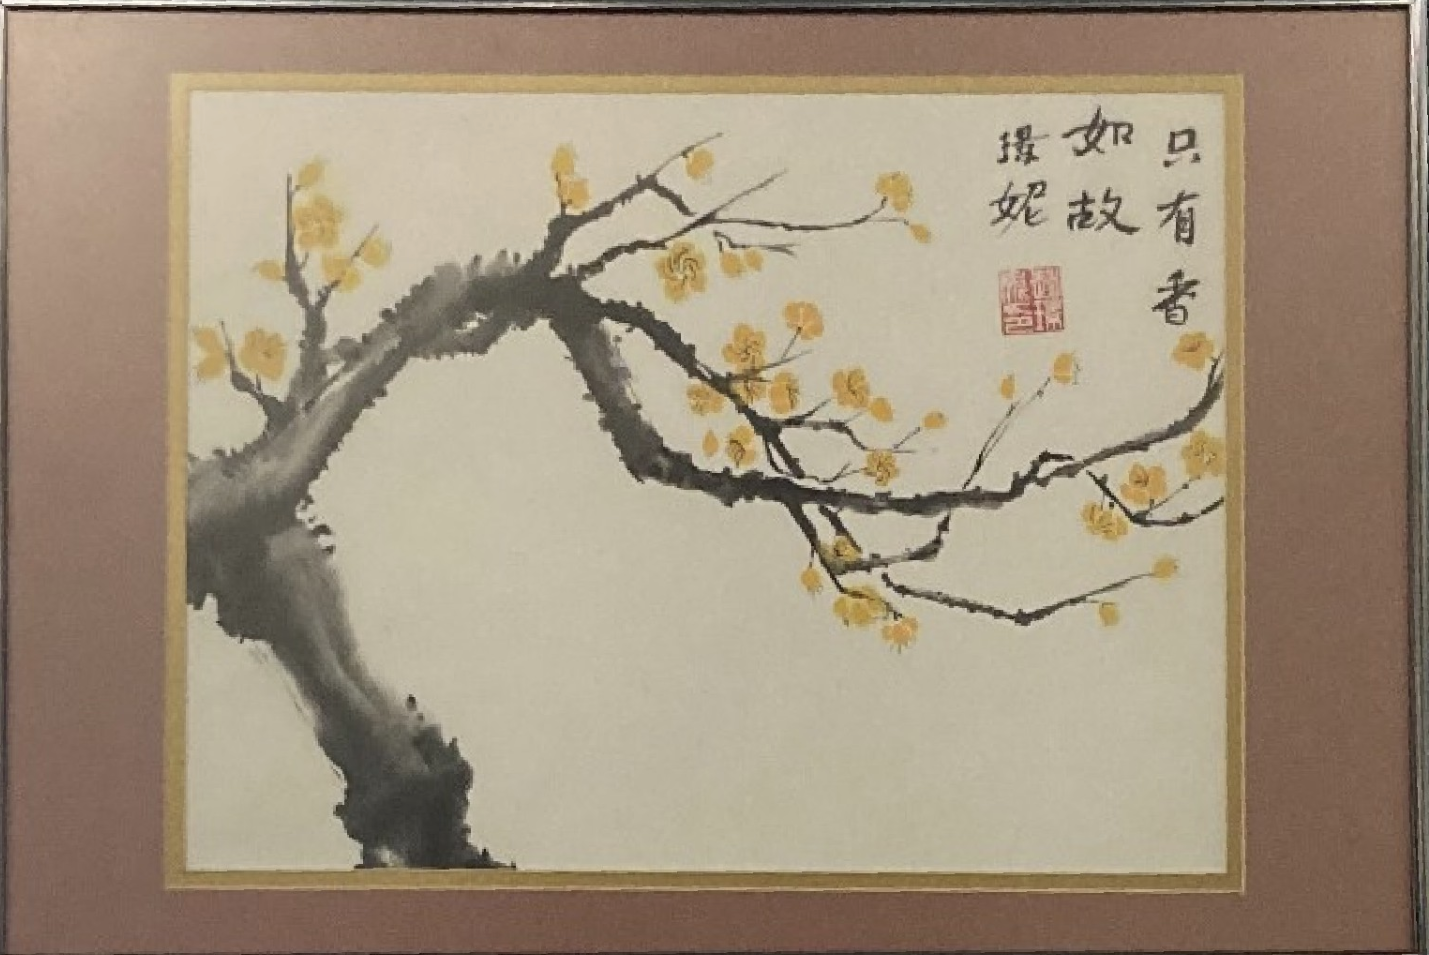 只有香
如故
妮